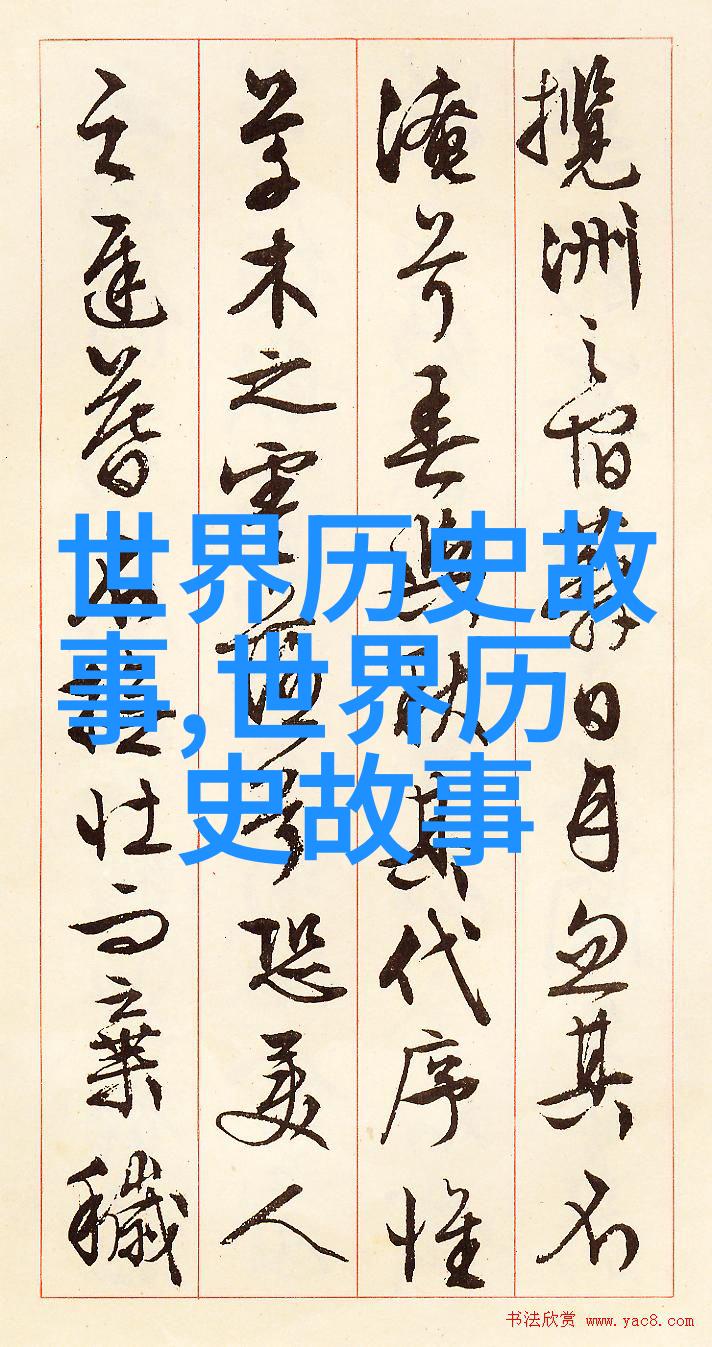 攬洲之宿莽日月忽其不
淹兮春與秋其代序惟
草木之零落兮恐美人
之遲暮不撫壯而棄穢
世界历史故
事,世界历
史故事
书法欣赏 www.yac8.com